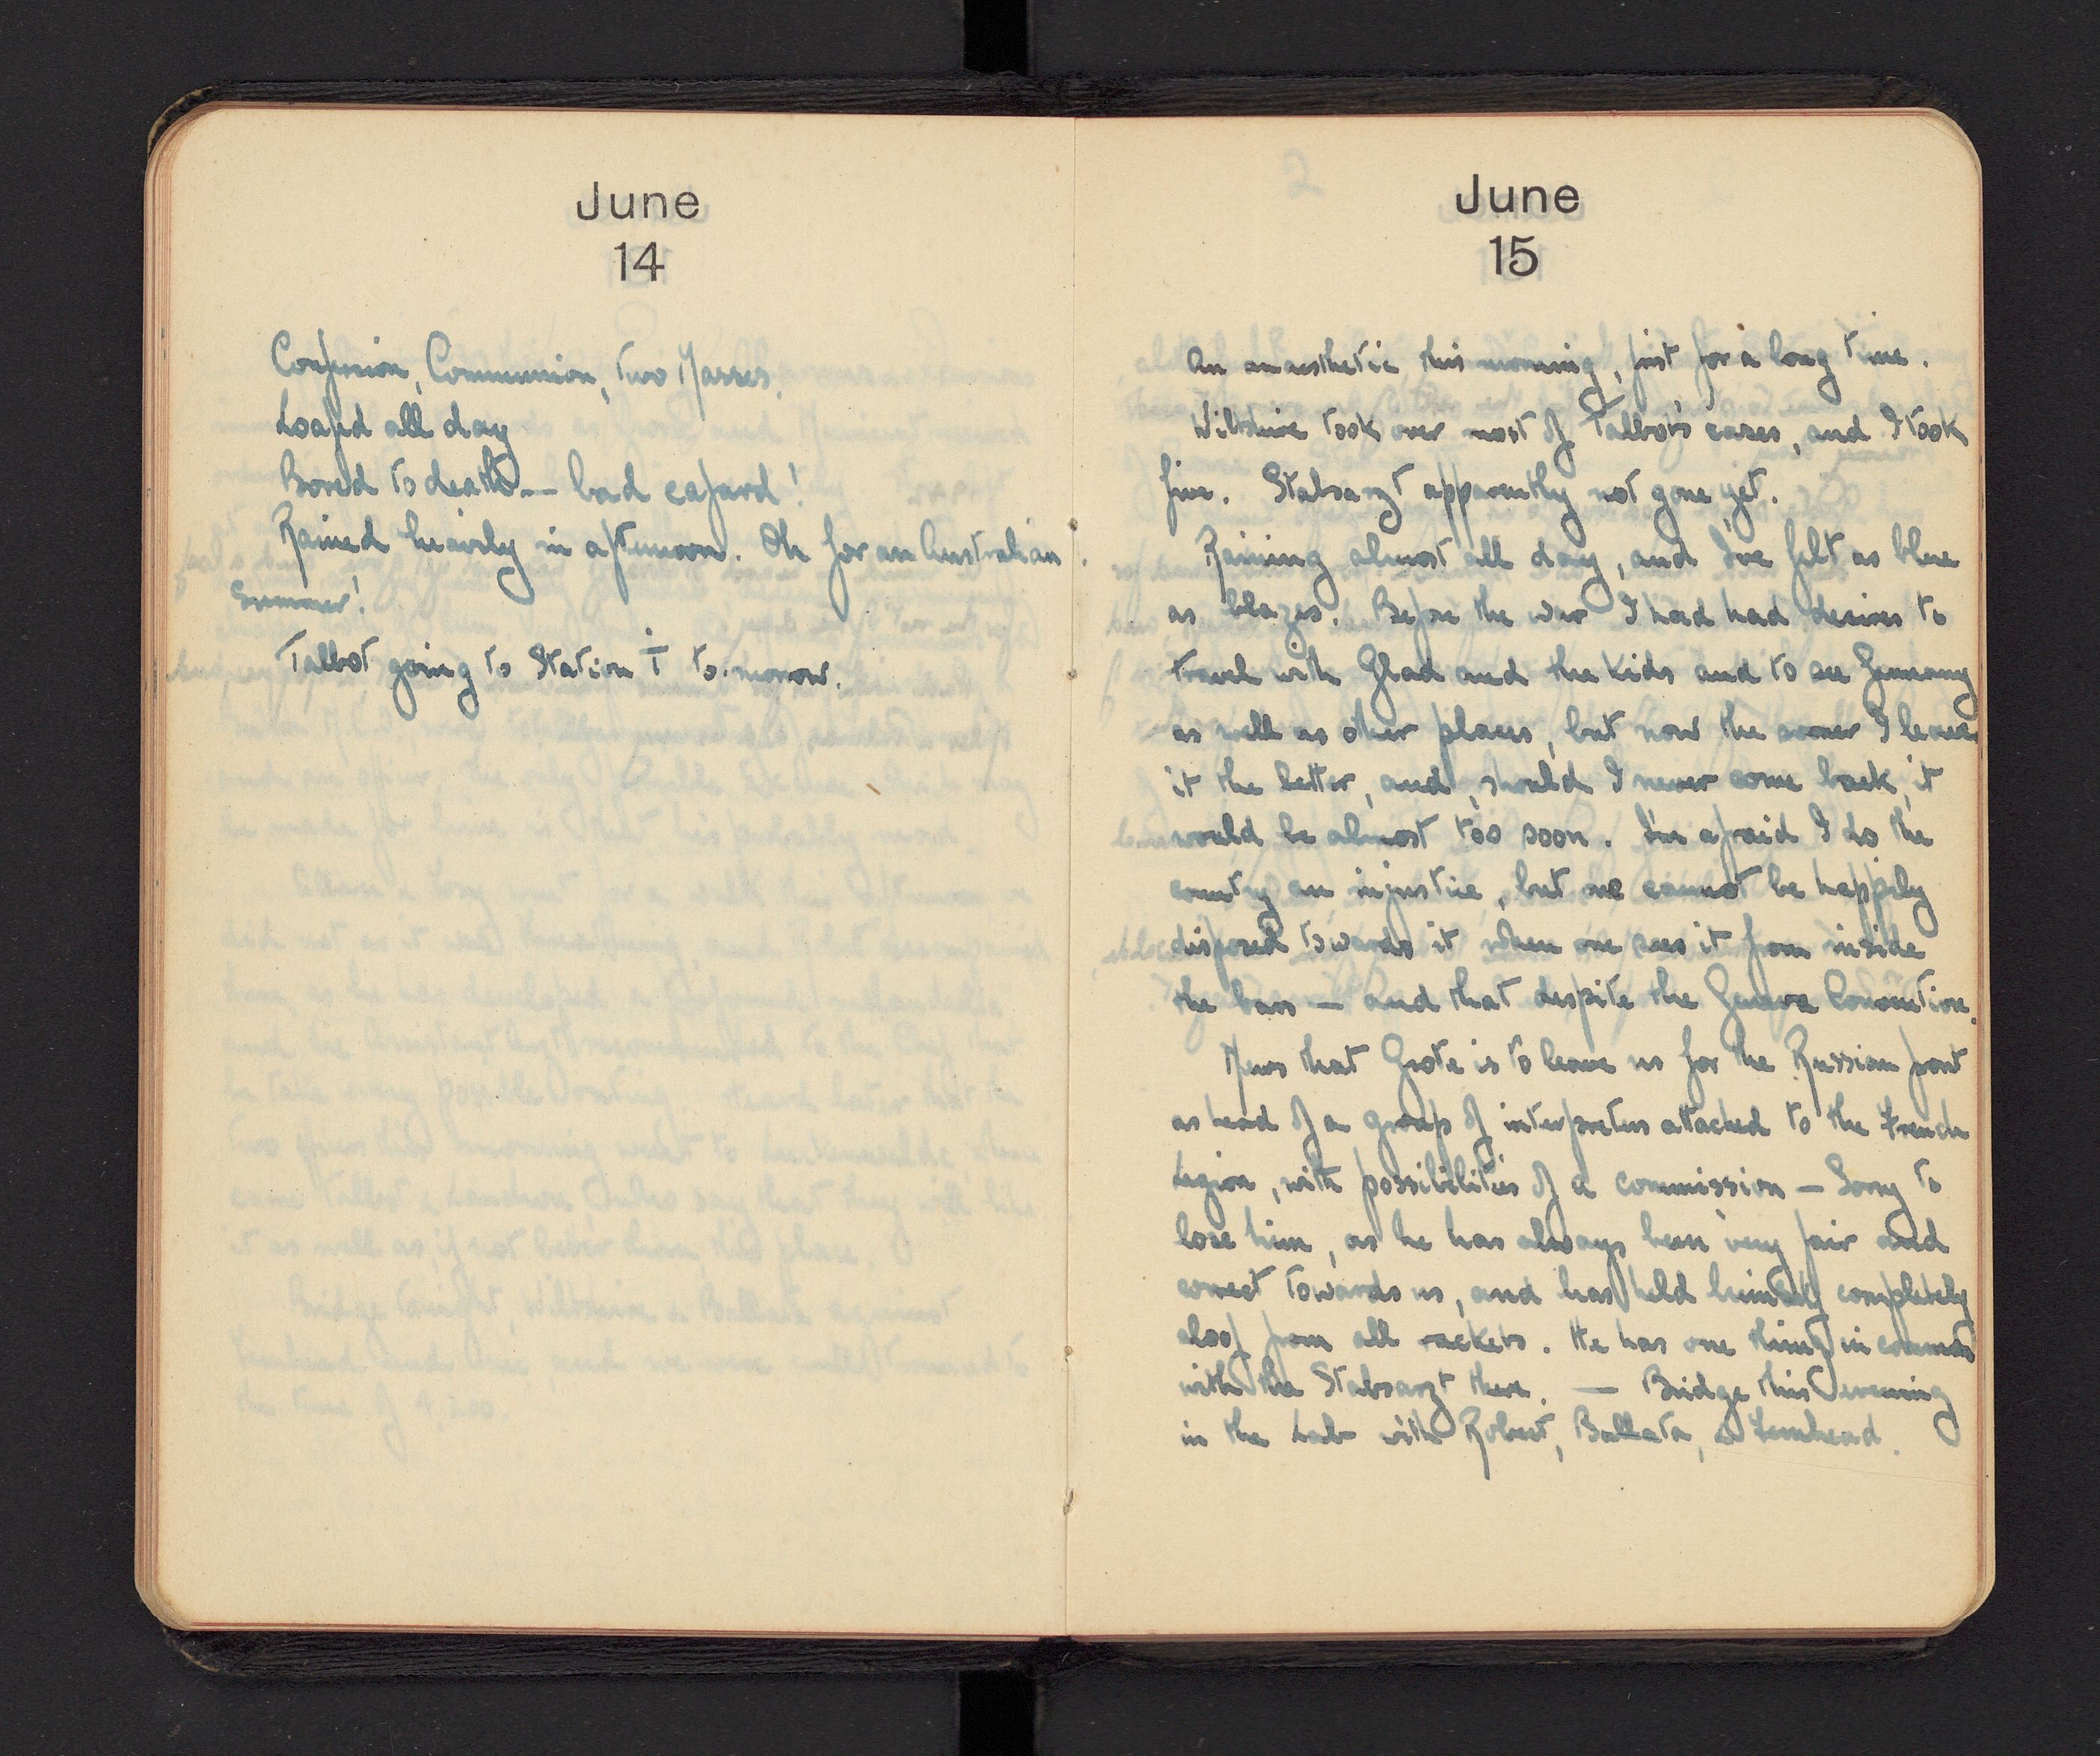 June
14
Confession, Communion, Two Masses.
Loafed all day
Bored to death — bad cafard!
Rained heavily in afternoon. Oh for an Australian
Summer!
Talbot going to Station I to-morrow.
2
June
15
An anaesthetic this morning, first for a long time.
Wiltshire took over most of Talbot's cases, and I took
five. Stabsarzt apparently not gone yet.
Raining almost all day, and I've felt as blue
as blazes. Before the war I had had desires to
travel with Glad and the kids and to see Germany
as well as other places, but now the sooner I leave
it the better, and, should I never come back, it
would be almost too soon. I'm afraid I do the
country an injustice, but one cannot be happily
disposed towards it when one sees it from inside
the bars — and that despite the Geneva Convention.
News that Grote is to leave us for the Russian front
as head of a group of interpreters attached to the French
Legion, with possibilities of a commission — Sorry to
lose him, as he has always been very fair and
correct towards us, and has held himself completely
aloof from all rackets. He has one thing in common
with the Stabsarzt there. — Bridge this evening
in the Lab with Robert, Ballata, &